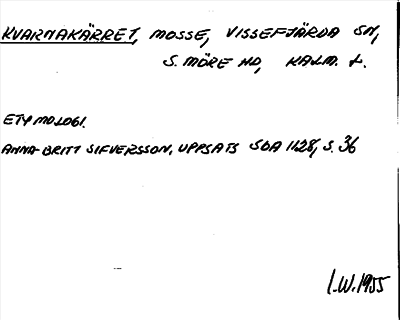 KVARNAKÄRRET, MOSSE, VISSEFJÄRDA SN,
S. MÖRE HD, KALM. L.
ETYMOLOGI.
ANNA-BRITT SIFVERSSON, UPPSATS SOA 1128, S. 36
I.W. 1955